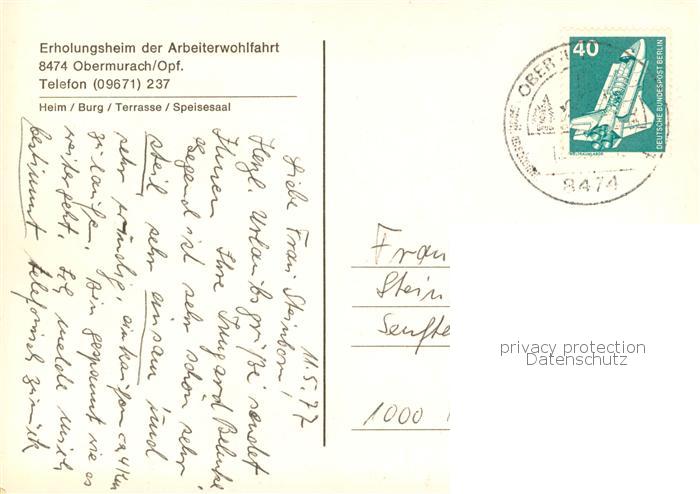 Erholungsheim der Arbeiterwohlfahrt
8474 Obermurach/Opf.
Telefon (09671) 237
Heim / Burg / Terrasse / Speisesaal
11.5.77
Liebe Frau Steinborn,
Herzl. Urlaubsgrüße sendet
Ihnen Ihre Irmgard
Gegend ist sehr schön sehr
steil sehr einsam und
sehr windig, einkaufen ca 4 Km
zu laufen. Bin gespannt wie es
weitergeht. Ich melde mich
bestimmt telefonisch zurück
40
DEUTSCHE BUNDESPOST BERLIN
WELTRAUMLABOR
8474
Frau
Stein
Senfte
1000
privacy protection
Datenschutz